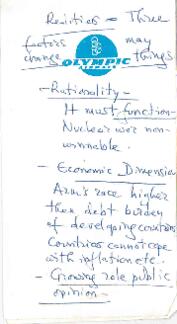 Realities – Three
factors may
change things
OLYMPIC
AIRWAYS
- Rationality -
It must function
Nuclear wars non-
winnable.
- Economic Dimension
Arms race higher
then debt burden
of developing countries
Countries cannot cope
with inflation etc.
- Growing role public
opinion -